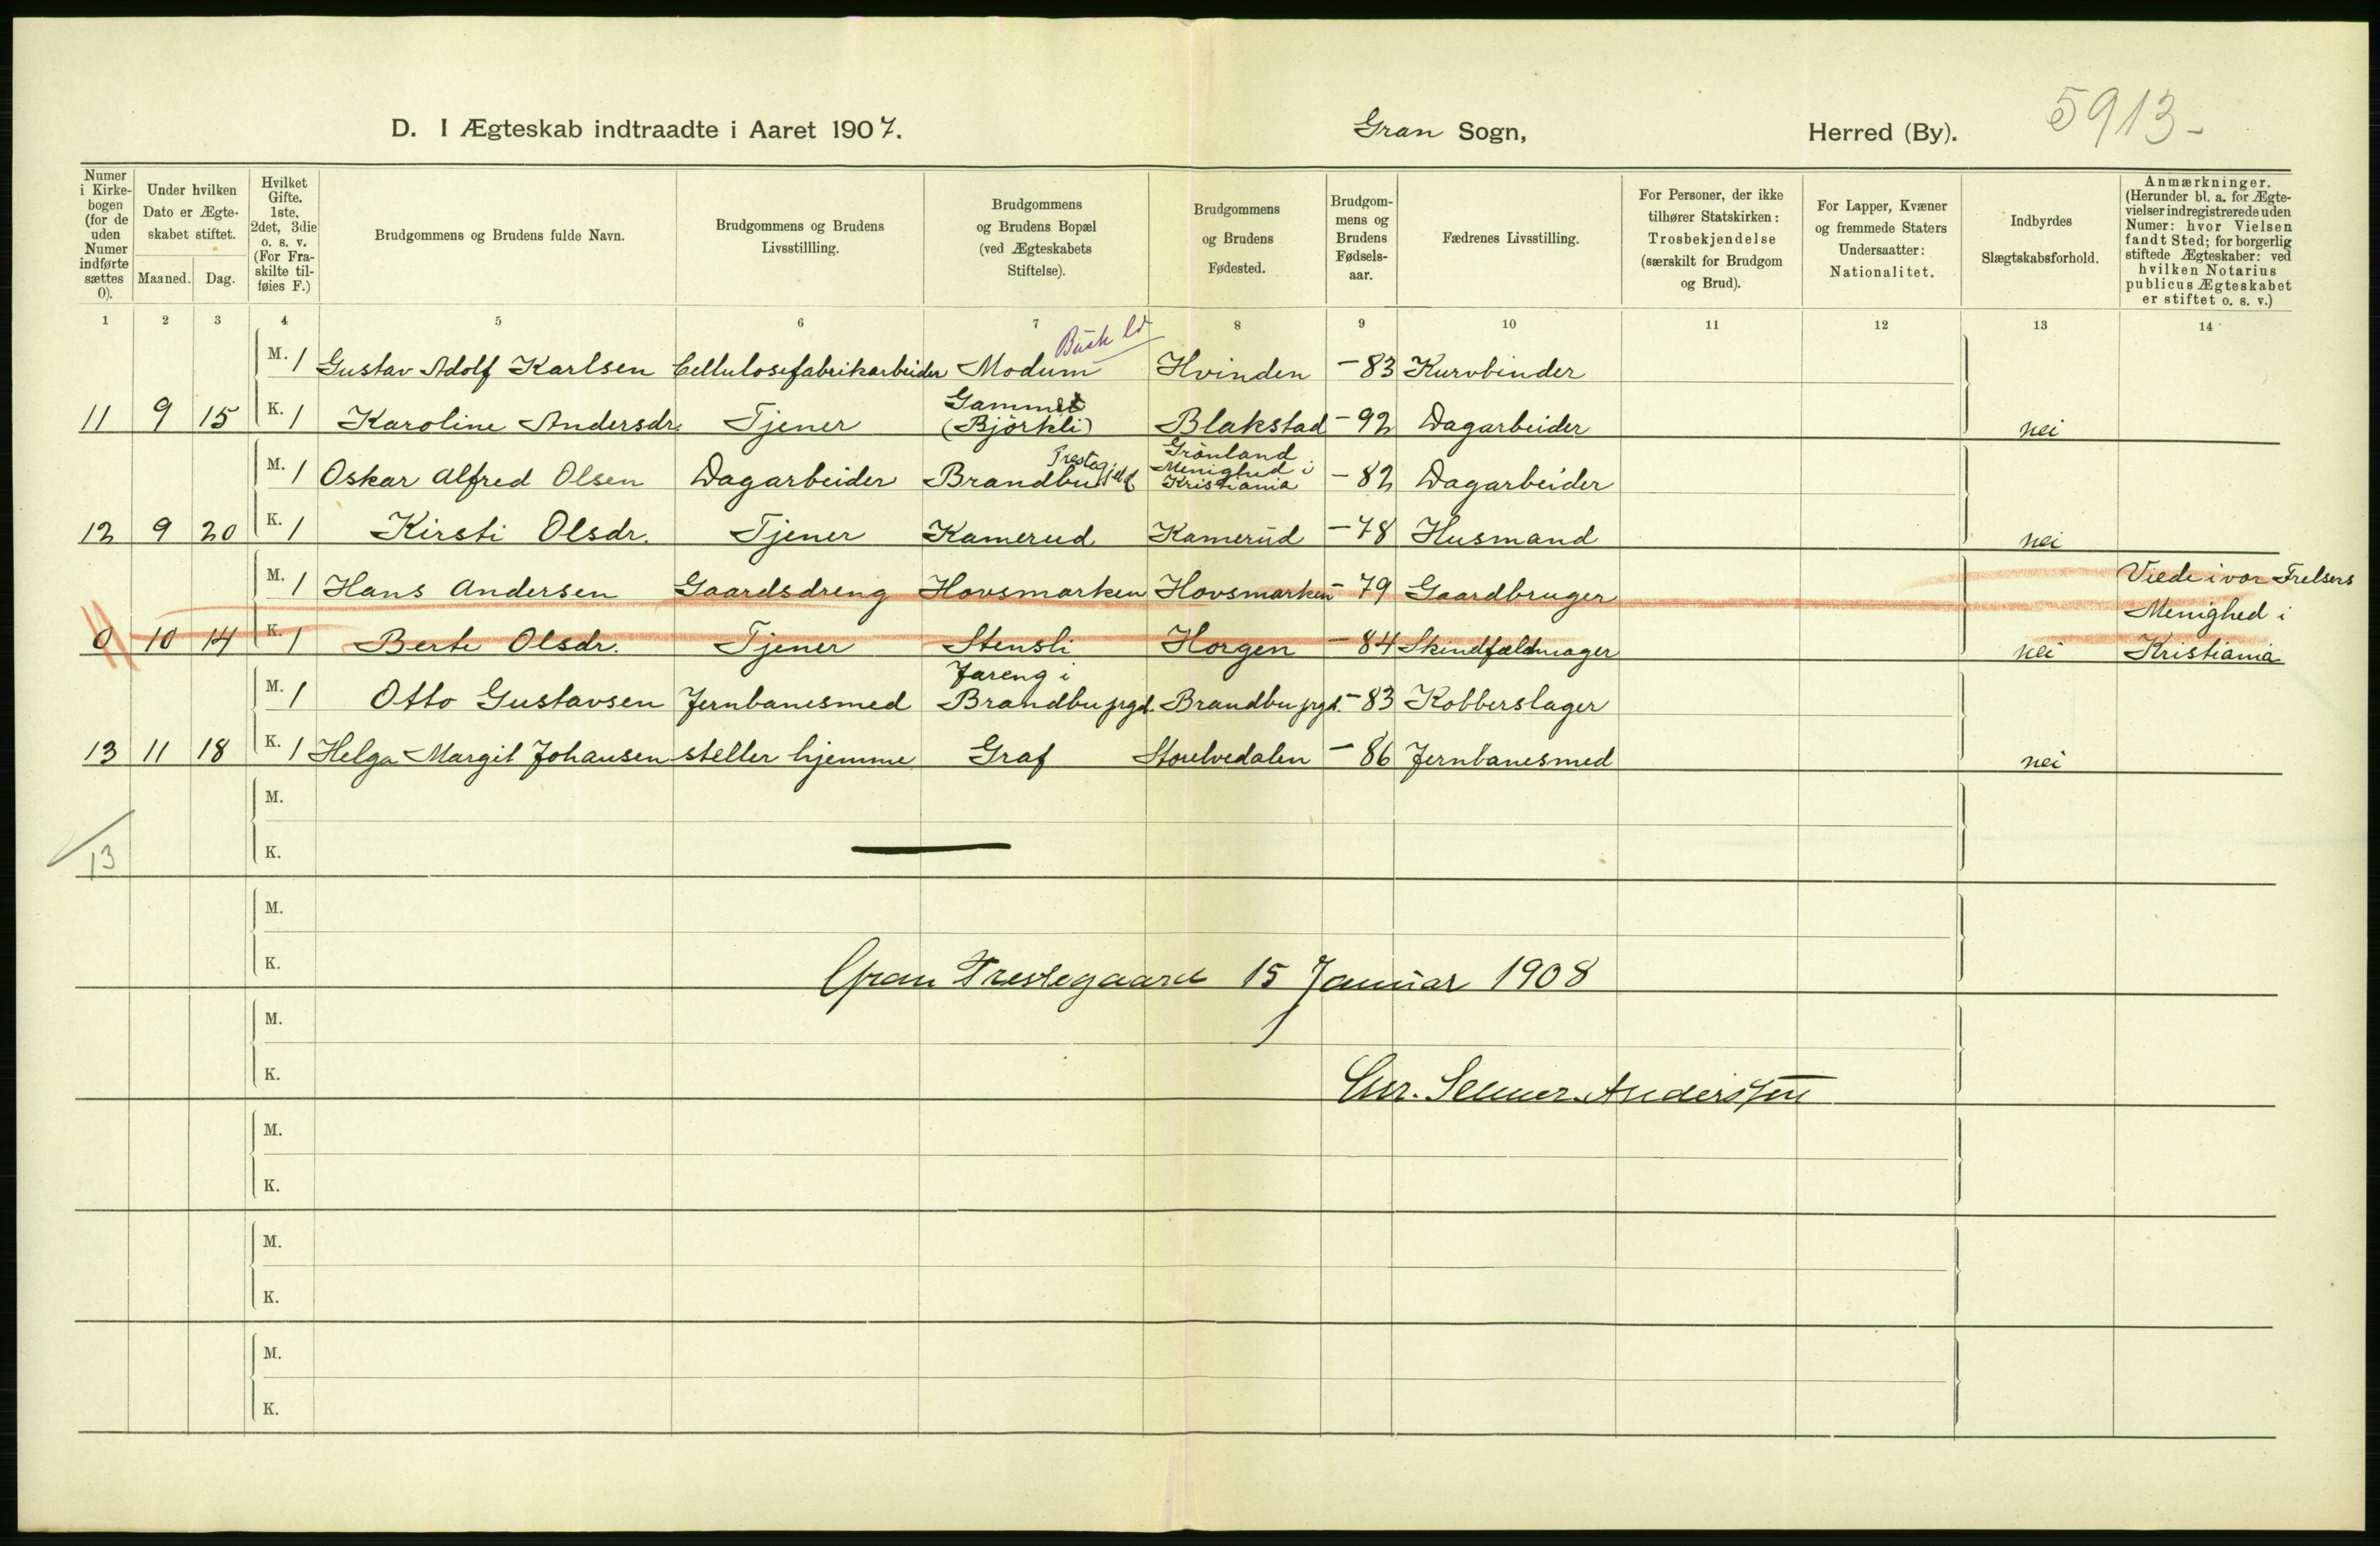 D. I Ægteskab indtraadte i Aaret 1907. Gran Sogn, Herred (By). 5913-
Numer i Kirke-bogen (for de uden Numer indførte sættes 0).
Under hvilken Dato er Ægte-skabet stiftet.
Maaned. Dag.
Hvilket Gifte. 1ste, 2det, 3die o. s. v. (For Fra-skilte til-føies F.)
Brudgommens og Brudens fulde Navn.
Brudgommens og Brudens Livsstillling.
Brudgommens og Brudens Bopæl (ved Ægteskabets Stiftelse).
Brudgommens og Brudens Fødested.
Brudgom-mens og Brudens Fødsels-aar.
Fædrenes Livsstilling.
For Personer, der ikke tilhører Statskirken: Trosbekjendelse (særskilt for Brudgom og Brud).
For Lapper, Kvæner og fremmede Staters Undersaatter: Nationalitet.
Indbyrdes Slægtskabsforhold.
Anmærkninger. (Herunder bl. a. for Ægte-vielser indregistrerede uden Numer: hvor Vielsen fandt Sted; for borgerlig stiftede Ægteskaber: ved hvilken Notarius publicus Ægteskabet er stiftet o. s. v.)
1 2 3 4 5 6 7 8 9 10 11 12 13 14
M. 1 Gustav Adolf Karlsen Cellulosefabrikarbeider Modum Hvinden -83 Kurvbinder
11 9 15 K. 1 Karoline Andersdr. Tjener Gamme (Björkli) Blakstad -92 Dagarbeider nei
M. 1 Oskar Alfred Olsen Dagarbeider Brandbu Prestegjeld Grönland Menighed i Kristiania -82 Dagarbeider
12 9 20 K. 1 Kirsti Olsdr. Tjener Kamerud Kamerud -78 Husmand nei
M. 1 Hans Andersen Gaardsdreng Hovsmarken Hovsmarken -79 Gaardbruger Viede i vor Frelsers
Menighed i
0 10 14 K. 1 Berte Olsdr. Tjener Stensli Horgen -84 Skindfældmager nei Kristiania
M. 1 Otto Gustavsen Jernbanesmed Jareng i Brandbu prgd. Brandbu prgd. -83 Kobberslager
13 11 18 K. 1 Helga Margit Johansen steller hjemme Graf Storelvedalen -86 Jernbanesmed nei
M.
13 K.
M.
K. Gran Prestegaard 15 Januar 1908
M.
K. Chr. Selmer Anderssen
M.
K.
M.
K.
M.
K.